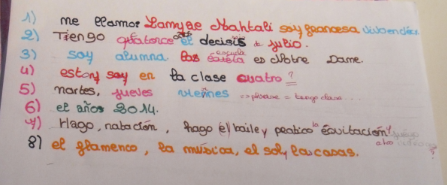 1) me llamor Lamyae Mahtali soy francesa vivo en
2) Tiengo quatorce años el decisis julio.
3) soy alumna las escuela es Notre Dame.
4) estoy soy en la clase cuatro?
5) martes, jueves viernes
6) el años 2014.
7) Hago, natación, hago él baile y pratico la équitación!
8) el flamenco, la música, el sol, las casas.